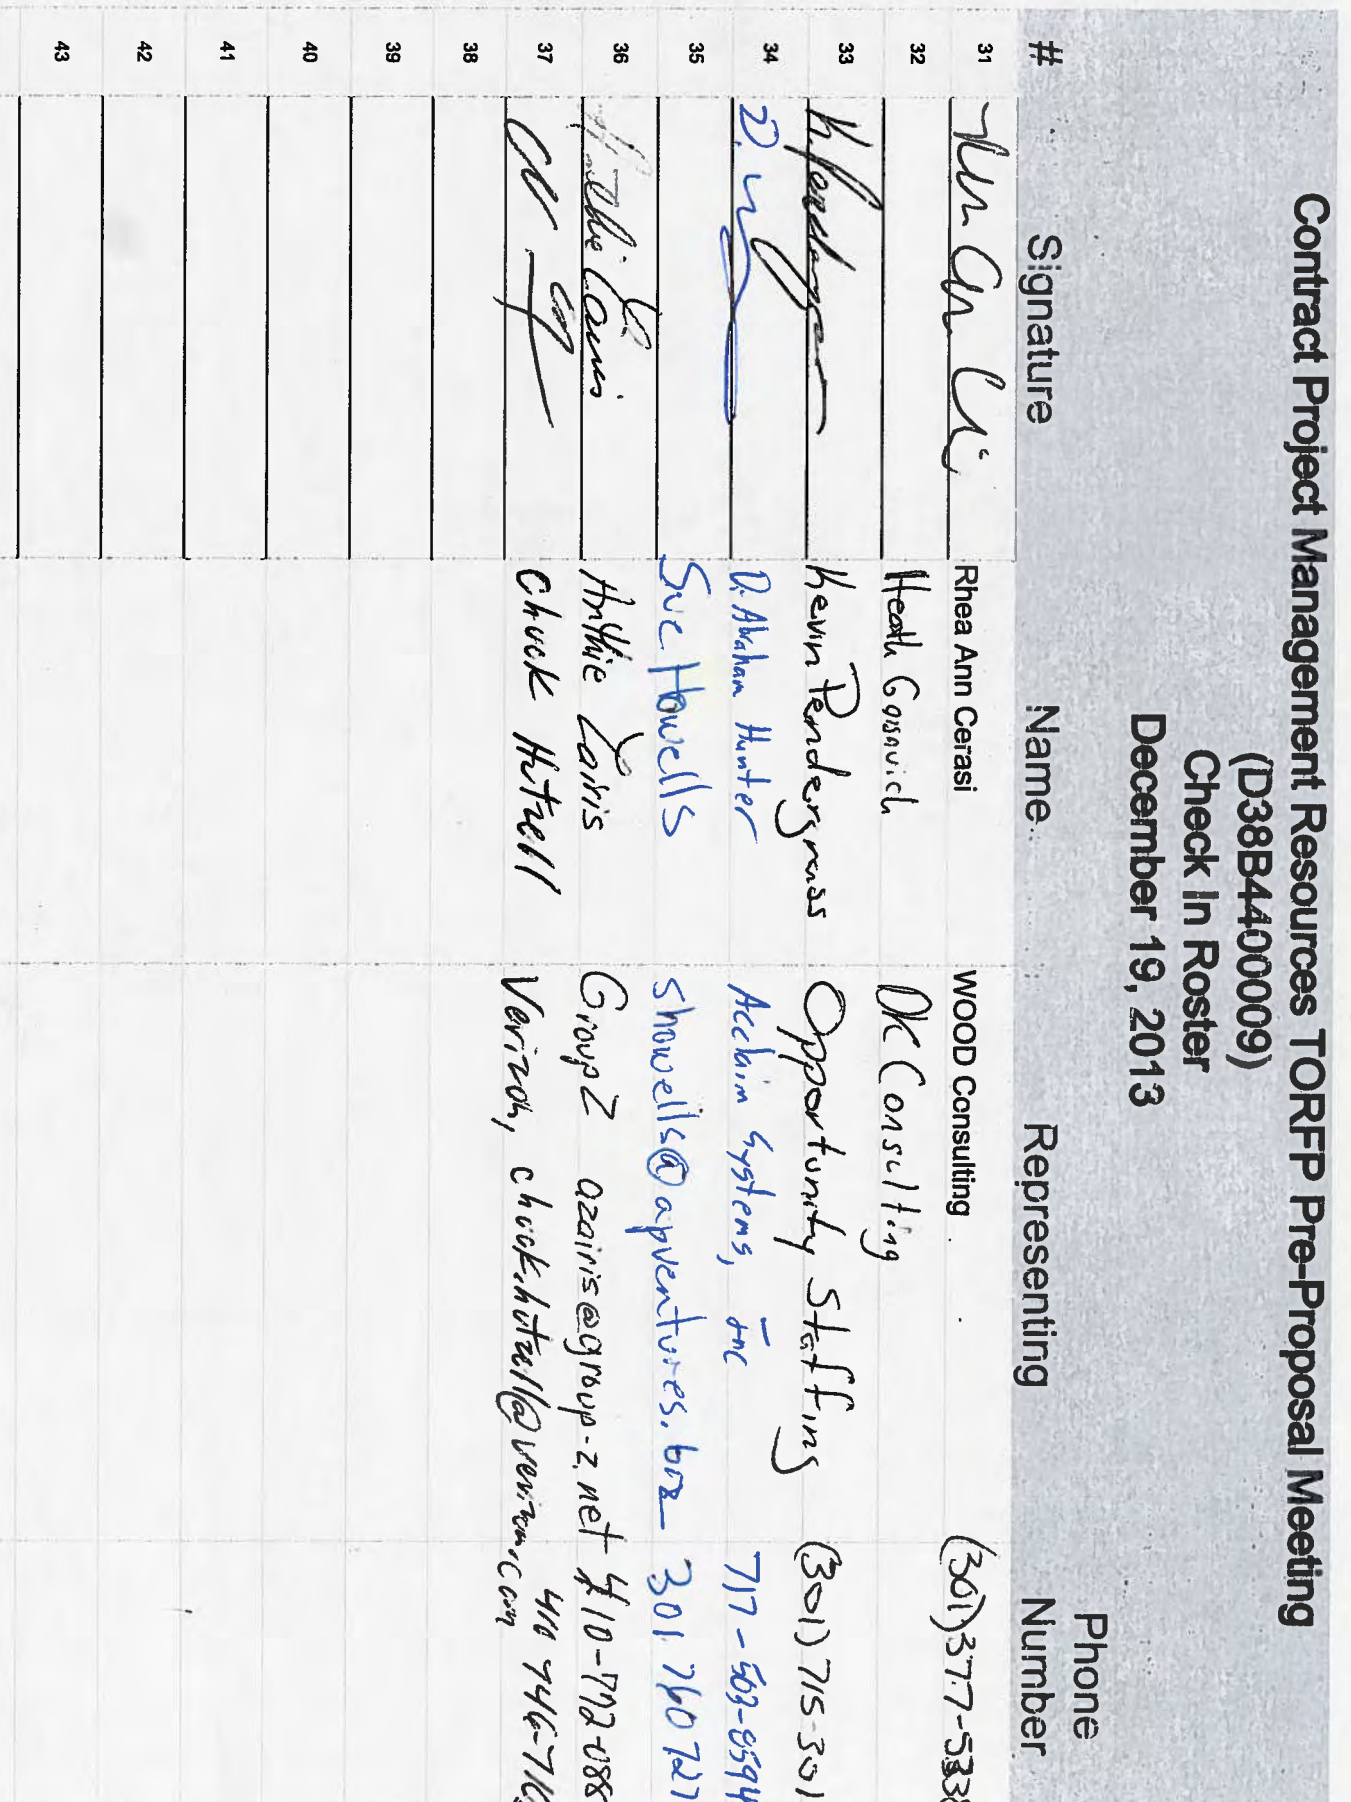 Contract Project Management Resources TORFP Pre-Proposal Meeting
(D38B4400009)
Check In Roster
December 19, 2013
# Signature Name Representing Phone Number
31 Rhea Ann Cerasi WOOD Consulting (301)377-533
32 Heath Gosnvich DK Consulting
33 K Pendergrass Kevin Pendergrass Opportunity Staffing (301) 715-301
34 D. Abraham Hunter Acclaim Systems, Inc 717-503-8594
35 Sue Howells showells@apventures.biz 301 760 727
36 Anthie Zairis Anthie Zairis Group Z azairis@group-z.net 410-772-088
37 Chuck Hutzell Verizon, chuck.hutzell@verizon.com 410 746-710
38
39
40
41
42
43